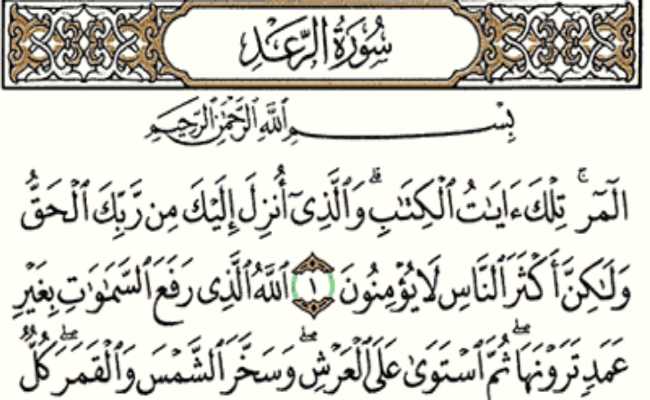 سُورَةُ الرَّعْدِ
بِسْمِ اللَّهِ الرَّحْمَٰنِ الرَّحِيمِ
الٓمٓرۚ تِلْكَ ءَايَٰتُ ٱلْكِتَٰبِۗ وَٱلَّذِىٓ أُنزِلَ إِلَيْكَ مِن رَّبِّكَ ٱلْحَقُّ
وَلَٰكِنَّ أَكْثَرَ ٱلنَّاسِ لَا يُؤْمِنُونَ ١ ٱللَّهُ ٱلَّذِى رَفَعَ ٱلسَّمَٰوَٰتِ بِغَيْرِ
عَمَدٍ تَرَوْنَهَاۖ ثُمَّ ٱسْتَوَىٰ عَلَى ٱلْعَرْشِۖ وَسَخَّرَ ٱلشَّمْسَ وَٱلْقَمَرَۖ كُلٌّ